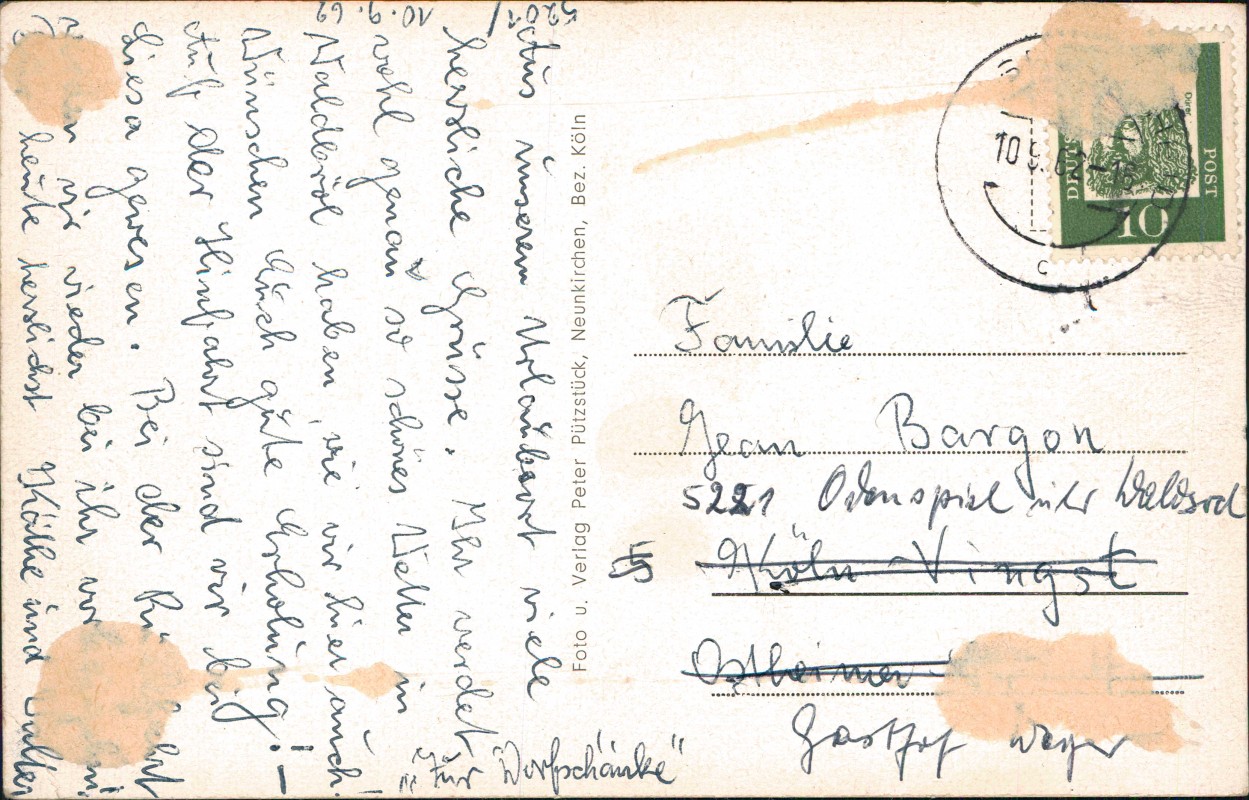 5201/
10.9.62
Aus unserem Urlaubsort viele
herzliche Grüsse. Ihr werdet
wohl genau so schönes Wetter in
Waldbröl haben, wie wir hier auch.
Wünschen Euch gute Erholung!–
Auf der Hinfahrt sind wir bei
Liesa gewesen. Bei der
wir wieder bei ihr
heute herzlichst Käthe und
"Zur Dorfschänke"
Foto u. Verlag Peter Pützstück, Neunkirchen, Bez. Köln
10.9.62-16
c
POST
10
Dürer
Familie
Jean Bargon
5221 Odenspiel über Waldbröl
Köln Vingst
Ostheimer
Gasthof